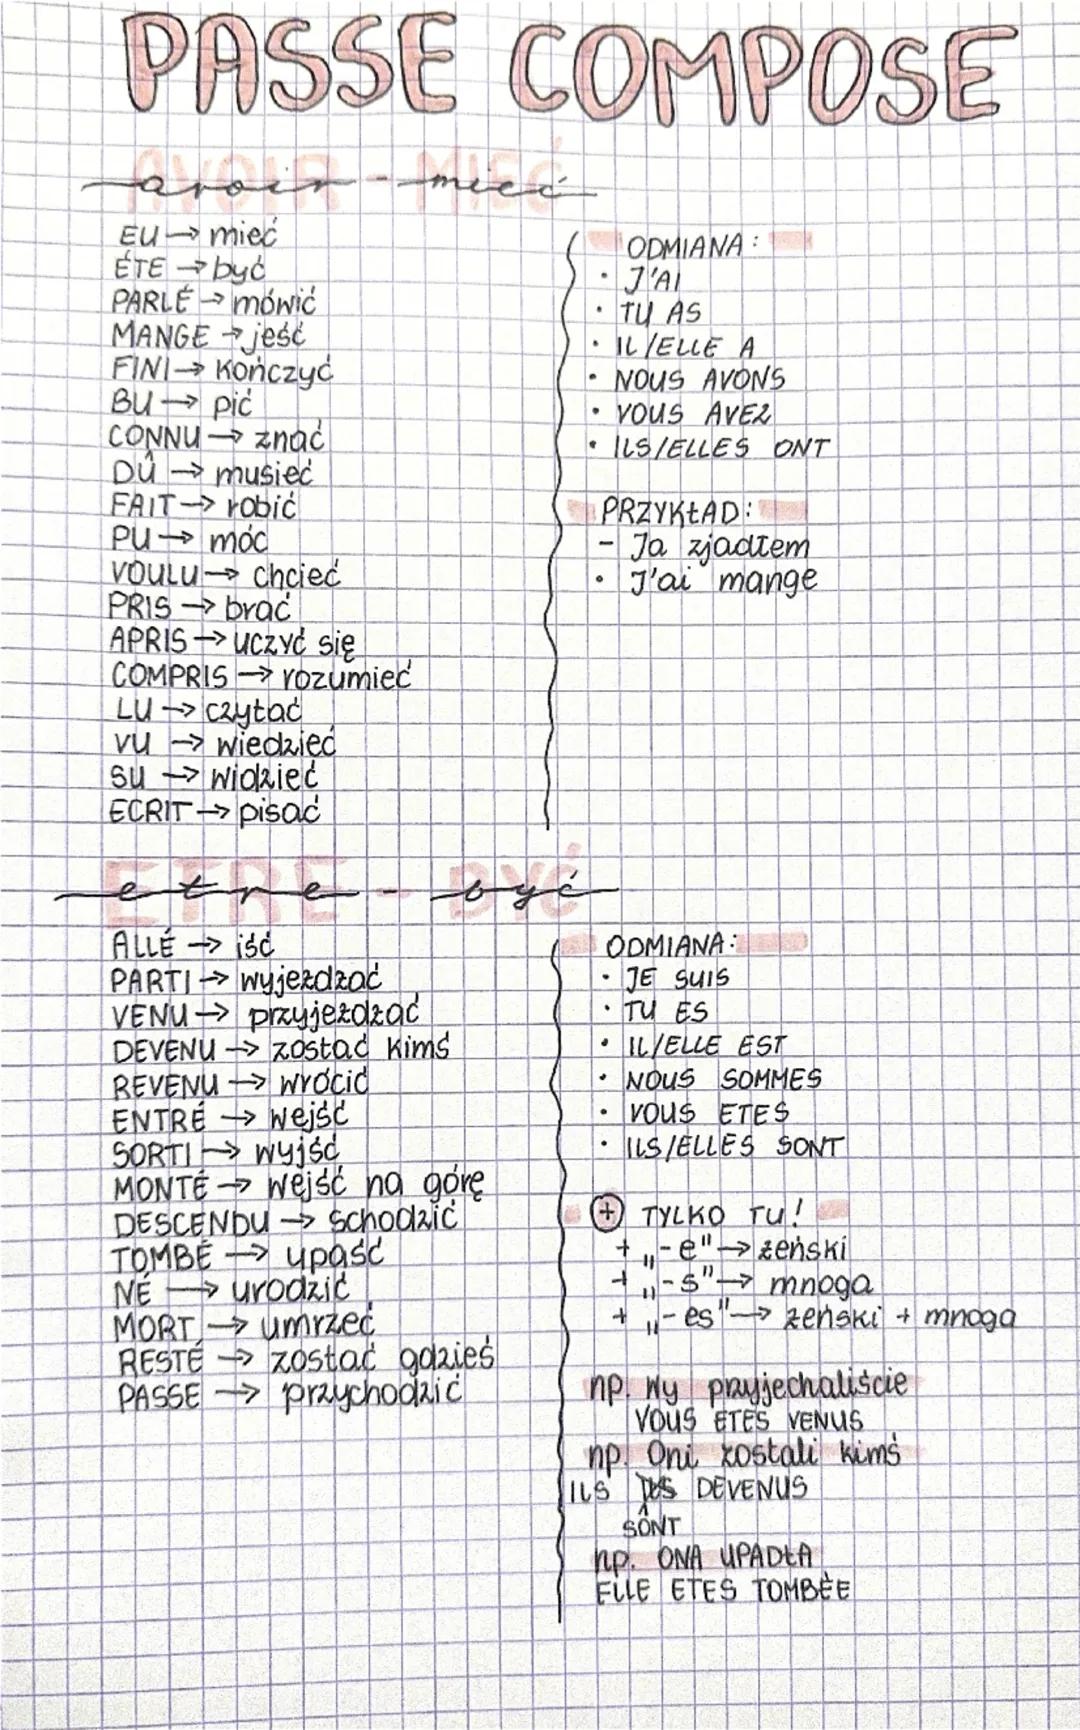 PASSE COMPOSE
avoir - mieć
EU → mieć
ÉTE → być
PARLÉ → mówić
MANGE → jeść
FINI → kończyć
BU → pić
CONNU → znać
DÛ → musieć
FAIT → robić
PU → móc
VOULU → chcieć
PRIS → brać
APRIS → uczyć się
COMPRIS → rozumieć
LU → czytać
VU → wiedzieć
SU → widzieć
ECRIT → pisać
ODMIANA:
· J'AI
· TU AS
· IL/ELLE A
· NOUS AVONS
· VOUS AVEZ
· ILS/ELLES ONT
PRZYKŁAD:
- Ja zjadłem
· J'ai mange
etre - być
ALLÉ → iść
PARTI → wyjeżdżać
VENU → przyjeżdżać
DEVENU → zostać kimś
REVENU → wrócić
ENTRÉ → wejść
SORTI → wyjść
MONTÉ → wejść na górę
DESCENDU → schodzić
TOMBÉ → upaść
NÉ → urodzić
MORT → umrzeć
RESTÉ → zostać gdzieś
PASSE → przychodzić
ODMIANA:
· JE SUIS
· TU ES
· IL/ELLE EST
· NOUS SOMMES
· VOUS ETES
· ILS/ELLES SONT
+ TYLKO TU!
+ „-e" → żeński
+ „-s" → mnoga
+ „-es" → żeński + mnoga
np. Wy przyjechaliście
VOUS ETES VENUS
np. Oni zostali kimś
ILS DEVENUS
SONT
np. ONA UPADŁA
ELLE ETES TOMBÉE